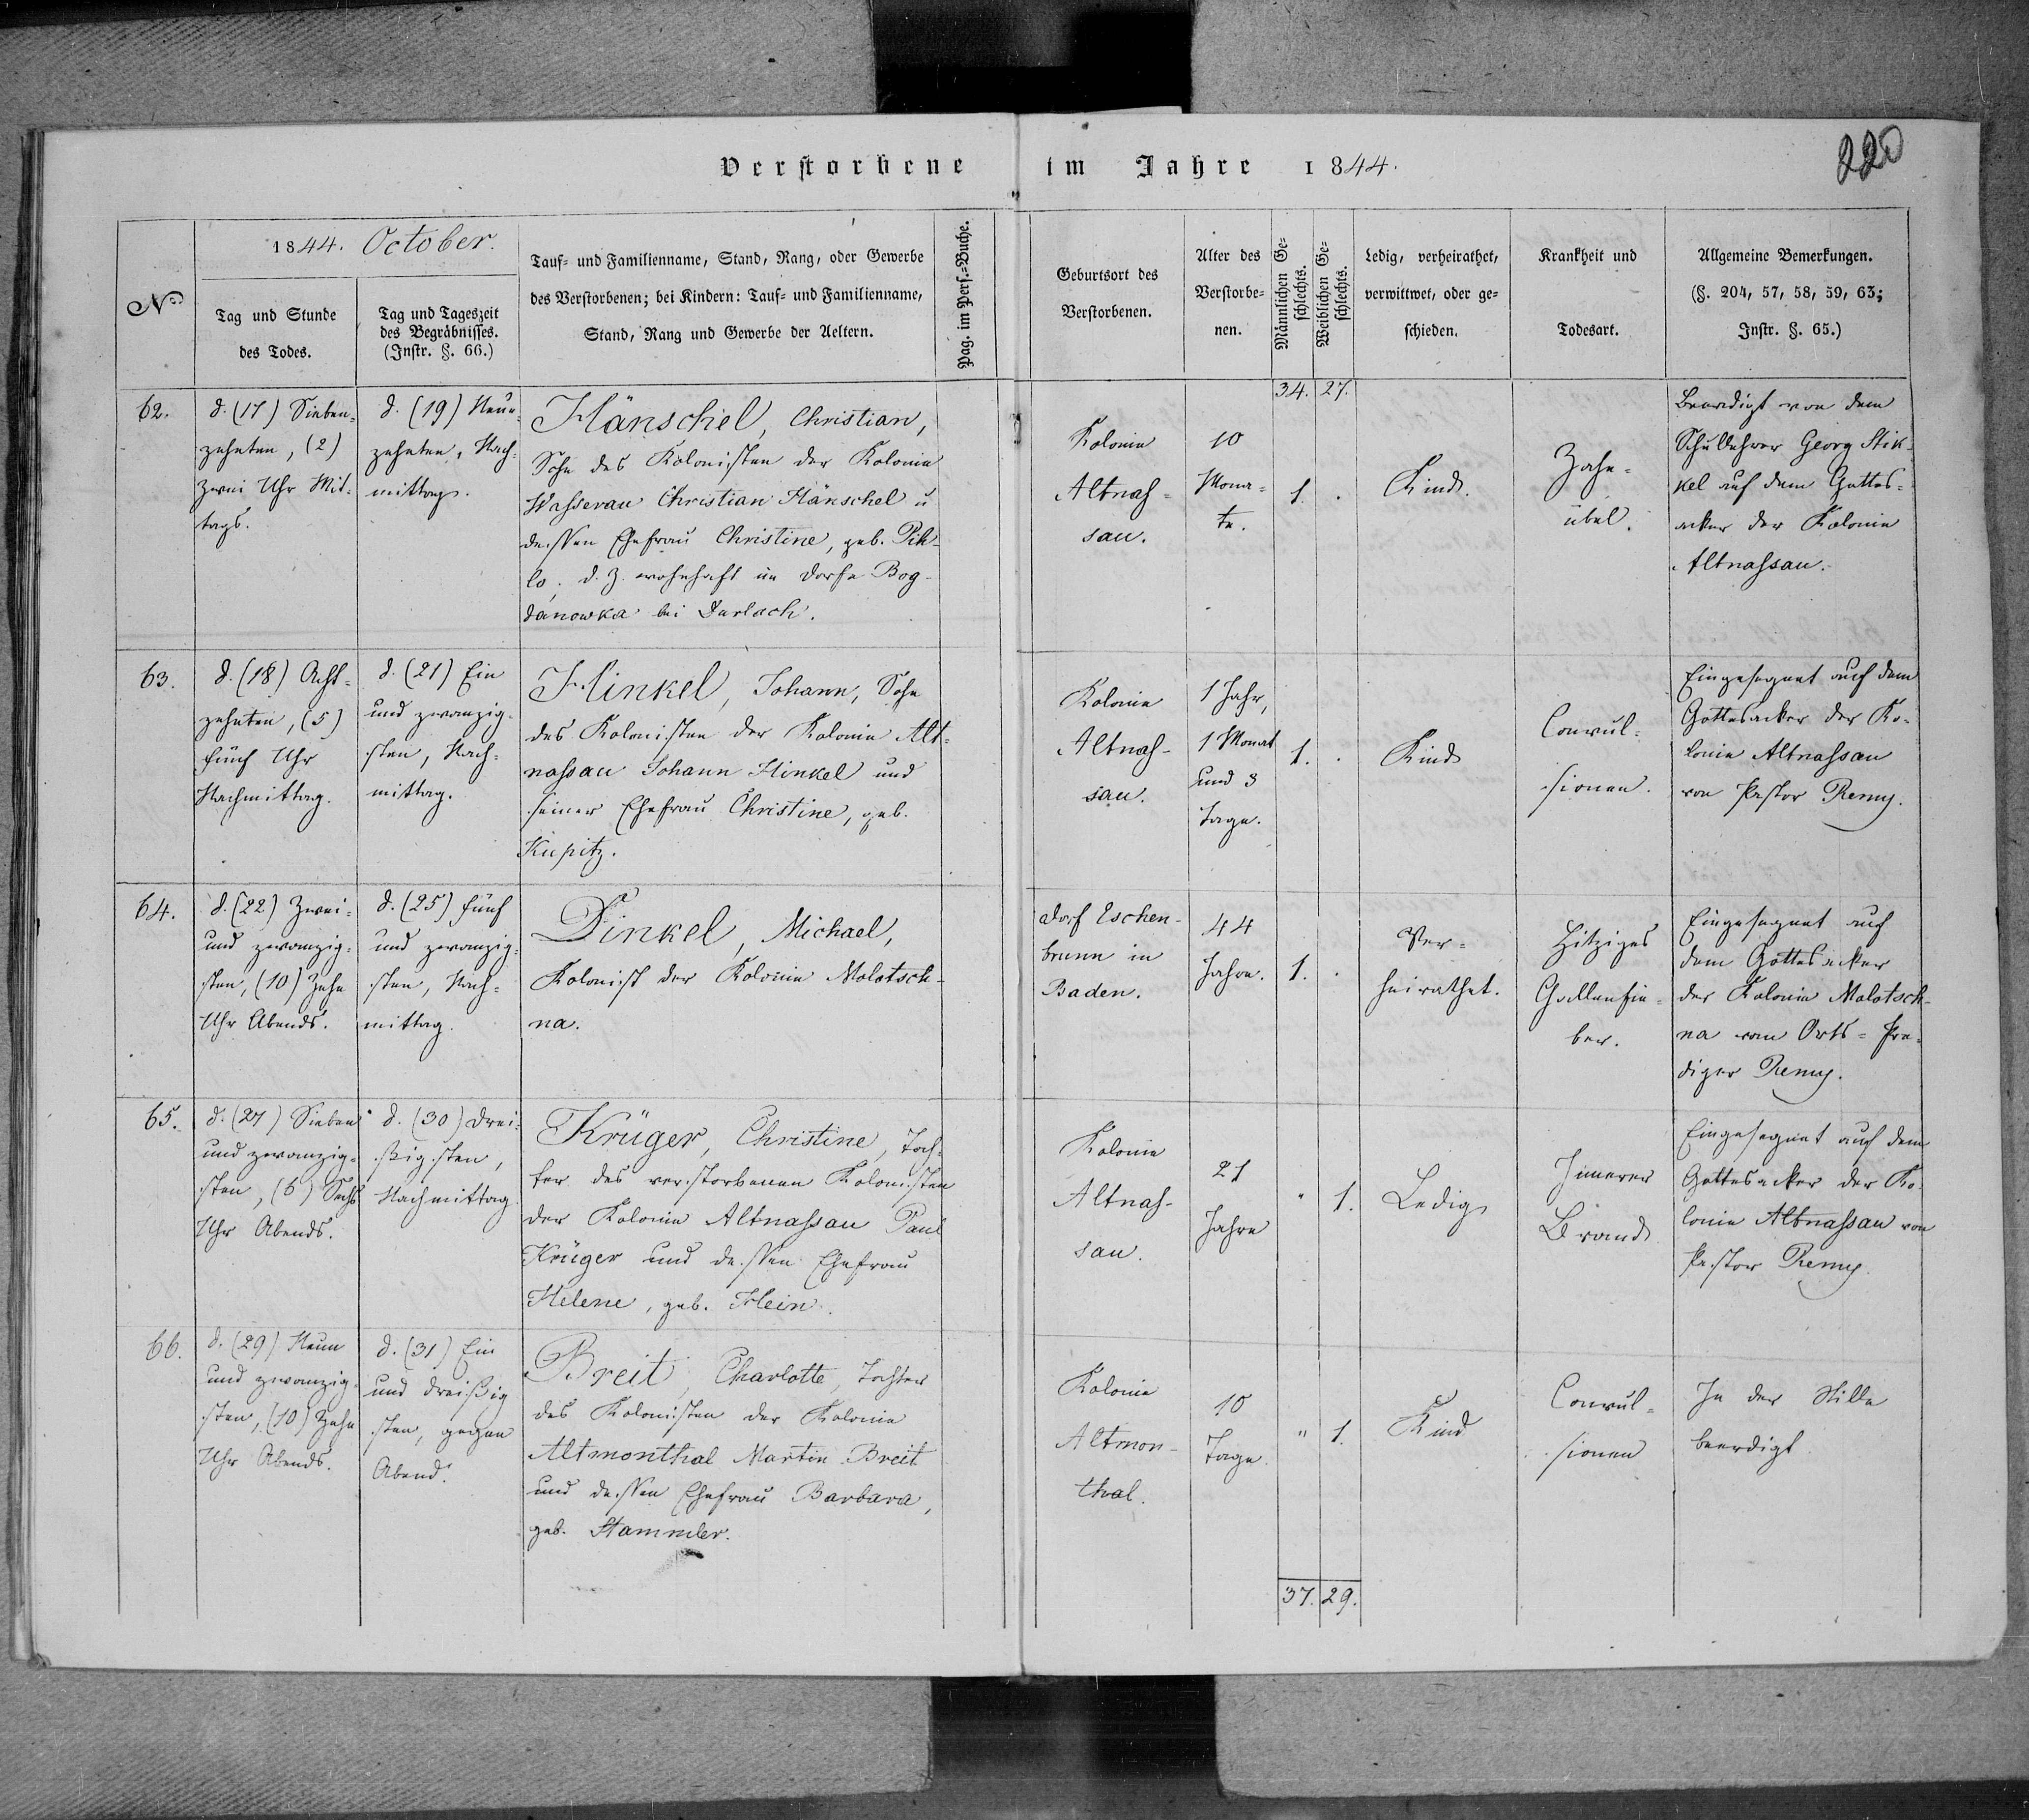 Verstorbene im Jahre 1844.
220
No
1844. October.
Tag und Stunde
des Todes.
Tag und Tageszeit
des Begräbnisses.
(Instr. §. 66.)
Tauf- und Familienname, Stand, Rang, oder Gewerbe
des Verstorbenen; bei Kindern: Tauf- und Familienname,
Stand, Rang und Gewerbe der Aeltern.
Pag. im Pers.-Buche.
Geburtsort des
Verstorbenen.
Alter des
Verstorbe-
nen.
Männlichen Ge-
schlechts.
Weiblichen Ge-
schlechts.
Ledig, verheirathet,
verwittwet, oder ge-
schieden.
Krankheit und
Todesart.
Allgemeine Bemerkungen.
(§. 204, 57, 58, 59, 63;
Instr. §. 65.)
34. 27.
62.
d. (17) Sieben-
zehnten, (2)
Zwei Uhr Mit-
tags.
d. (19) Neun-
zehnten, Nach-
mittags.
Hänschel, Christian,
Sohn des Kolonisten der Kolonie
Wasserau Christian Hänschel u
dessen Ehefrau Christine, geb. Pik-
lo. d. Z. wohnhaft im Dorfe Bog-
danowka bei Durlach.
Kolonie
Altnas-
sau.
10
Mona-
te.
1.
Kind.
Zahn-
übel.
Beerdigt von dem
Schullehrer Georg Stik-
kel auf dem Gottes-
acker der Kolonie
Altnassau.
63.
d. (18) Acht-
zehnten, (5)
fünf Uhr
Nachmittag.
d. (21) Ein
und zwanzig-
sten, Nach-
mittag.
Hinkel, Johann, Sohn
des Kolonisten der Kolonie Alt-
nassau Johann Hinkel und
seiner Ehefrau Christine, geb.
Kupitz.
Kolonie
Altnas-
sau.
1 Jahr,
1 Monat
und 3
Tage.
1.
Kind
Convul-
sionen.
Eingesegnet auf dem
Gottesacker der Ko-
lonie Altnassau
von Pastor Remy.
64.
d. (22) Zwei-
und zwanzig-
sten, (10) Zehn
Uhr Abends.
d. (25) fünf
und zwanzig-
sten, Nach-
mittag.
Dinkel, Michael,
Kolonist der Kolonie Molotsch-
na.
Dorf Eschen-
brunn in
Baden.
44
Jahre.
1.
Ver-
heirathet.
Hitziges
Gallenfie-
ber.
Eingesegnet auf
dem Gottesacker
der Kolonie Molotsch-
na vom Orts-Pre-
diger Remy.
65.
d. (27) Sieben
und zwanzig-
sten, (6) Sechs
Uhr Abends.
d. (30) Drei-
ßigsten,
Nachmittag.
Krüger, Christine, Toch-
ter des verstorbenen Kolonisten
der Kolonie Altnassau Paul
Krüger und dessen Ehefrau
Helene, geb. Hein.
Kolonie
Altnas-
sau.
21
Jahre
" 1.
Ledig
Innerer
Brand
Eingesegnet auf dem
Gottesacker der Ko-
lonie Altnassau von
Pastor Remy.
66.
d. (29) Neun
und zwanzig-
sten, (10) Zehn
Uhr Abends.
d. (31) Ein
und dreißig
sten, gegen
Abend.
Breit, Charlotte, Tochter
des Kolonisten der Kolonie
Altmonthal Martin Breit
und dessen Ehefrau Barbara,
geb. Stammler.
Kolonie
Altmon-
thal.
10
Tage.
" 1.
Kind
Convul-
sionen
In der Stille
beerdigt.
37. 29.